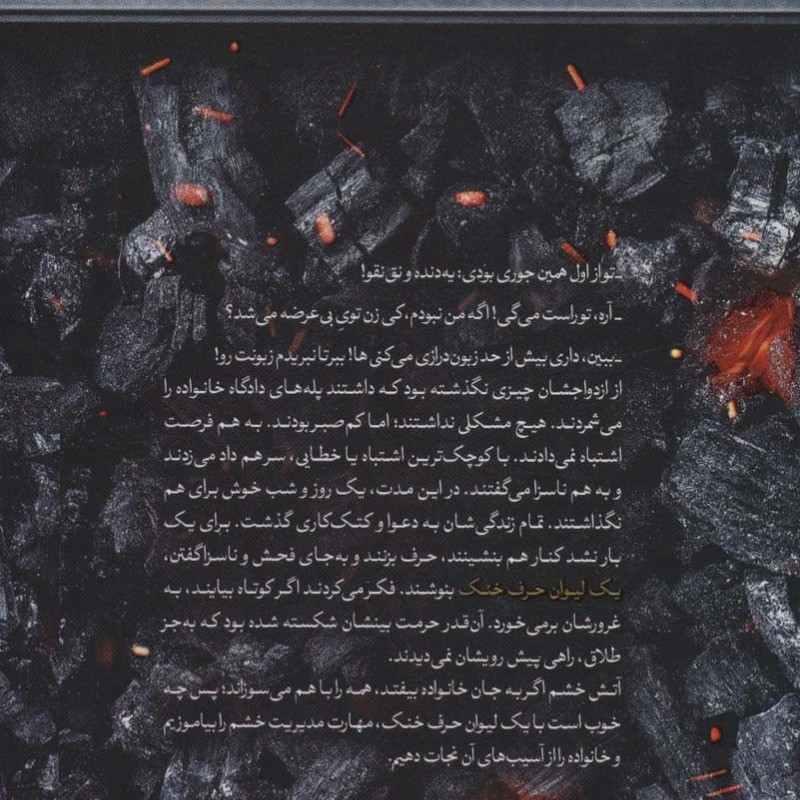 ـ تو از اول همین جوری بودی: یه‌دنده و نق‌نقو!
ـ آره، تو راست می‌گی! اگه من نبودم، کی زن توی بی‌عرضه می‌شد؟
ـ ببین، داری بیش از حد زبون‌درازی می‌کنی ها! ببر تا نبریدم زبونت رو!
از ازدواجشان چیزی نگذشته بود که داشتند پله‌های دادگاه خانواده را
می‌شمردند. هیچ مشکلی نداشتند؛ اما کم‌صبر بودند. به هم فرصت
اشتباه نمی‌دادند. با کوچک‌ترین اشتباه یا خطایی، سر هم داد می‌زدند
و به هم ناسزا می‌گفتند. در این مدت، یک روز و شب خوش برای هم
نگذاشتند. تمام زندگی‌شان به دعوا و کتک‌کاری گذشت. برای یک
بار نشد کنار هم بنشینند، حرف بزنند و به‌جای فحش و ناسزا گفتن،
یک لیوان حرف خنک بنوشند. فکر می‌کردند اگر کوتاه بیایند، به
غرورشان برمی‌خورد. آن‌قدر حرمت بینشان شکسته شده بود که به‌جز
طلاق، راهی پیش رویشان نمی‌دیدند.
آتش خشم اگر به جان خانواده بیفتد، همه را با هم می‌سوزاند؛ پس چه
خوب است با یک لیوان حرف خنک، مهارت مدیریت خشم را بیاموزیم
و خانواده را از آسیب‌های آن نجات دهیم.